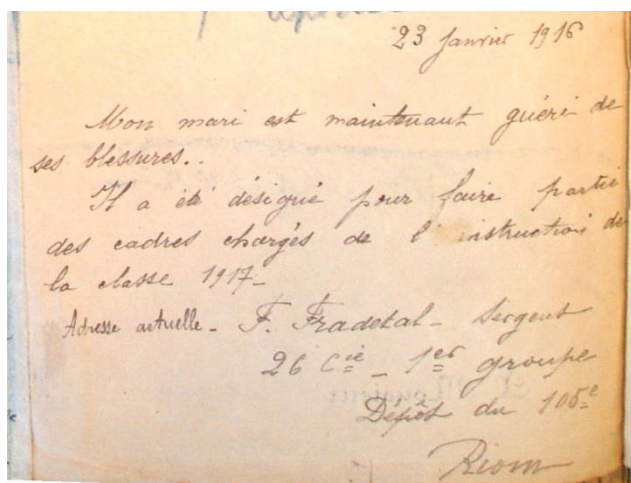 23 Janvier 1916
Mon mari est maintenant guéri de
ses blessures..
Il a été désigné pour faire partie
des cadres chargés de l'instruction de
la classe 1917_
Adresse actuelle_ F. Fradetal_ Sergent
26 Cie_ 1er groupe
Dépôt du 105e
Riom